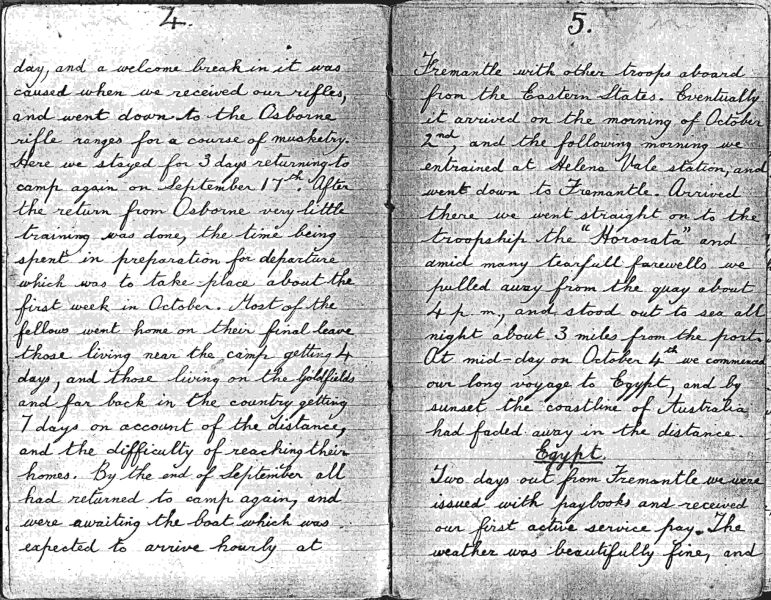 4.
day, and a welcome break in it was
caused when we received our rifles,
and went down to the Osborne
rifle ranges for a course of musketry.
Here we stayed for 3 days returning to
camp again on September 17th. After
the return from Osborne very little
training was done, the time being
spent in preparation for departure
which was to take place about the
first week in October. Most of the
fellows went home on their final leave
those living near the camp getting 4
days, and those living on the Goldfields
and far back in the country getting
7 days on account of the distance,
and the difficulty of reaching their
homes. By the end of September all
had returned to camp again, and
were awaiting the boat which was
expected to arrive hourly at
5.
Fremantle with other troops aboard
from the Eastern States. Eventually
it arrived on the morning of October
2nd, and the following morning we
entrained at Helena Vale station, and
went down to Fremantle. Arrived
there we went straight on to the
troopship the "Hororata" and
amid many tearfull farewells we
pulled away from the quay about
4 p.m, and stood out to sea all
night about 3 miles from the port.
At mid-day on October 4th we commenced
our long voyage to Egypt, and by
sunset the coastline of Australia
had faded away in the distance.
Egypt.
Two days out from Fremantle we were
issued with paybooks and received
our first active service pay. The
weather was beautifully fine, and